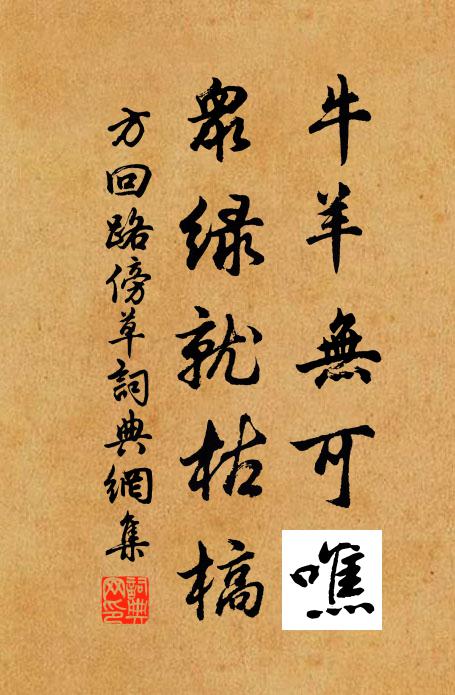 牛羊無可噍
衆緑就枯槁
方回路傍草詞典網集
詞典網印